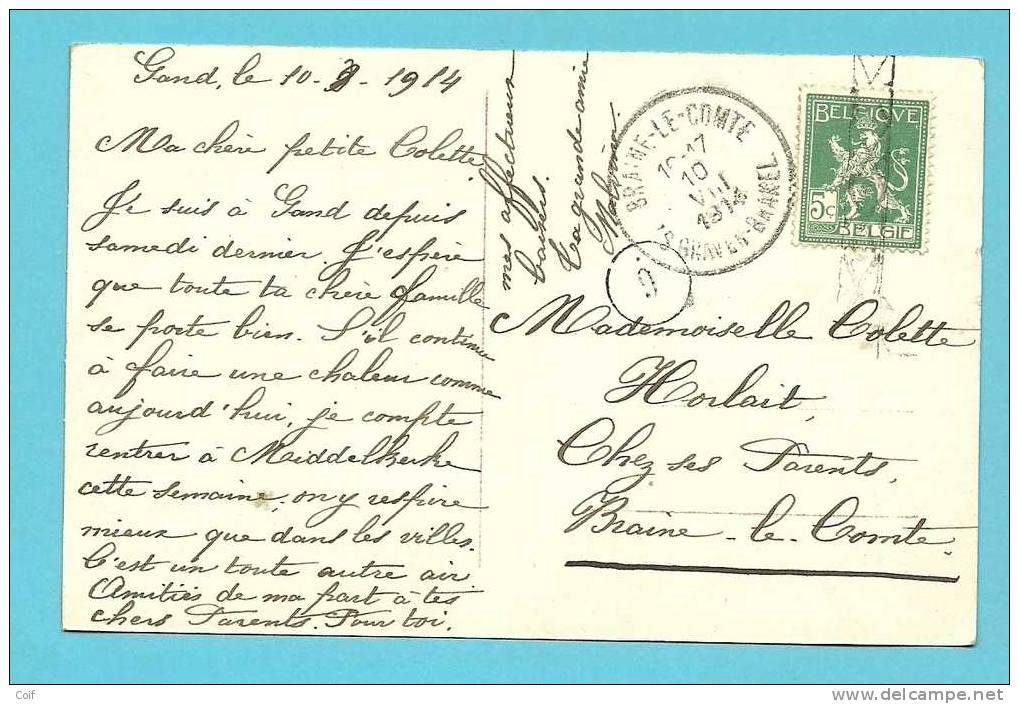 Gand, le 10-8-1914
Ma chère petite Colette,
Je suis à Gand depuis
samedi dernier. J'espère
que toute ta chère famille
se porte bien. S'il continue
à faire une chaleur comme
aujourd'hui, je compte
rentrer à Middelkerke
cette semaine. on y respire
mieux que dans les villes.
C'est un toute autre air
Amitiés de ma part à tes
chers Parents. Pour toi.
mes affectueux
baisers.
Ta grande amie
BRAINE-LE-COMTE
10
VII
1914
'S GRAVEN-BRAKEL
9
BELGIQUE
5c
BELGIË
Mademoiselle Colette
Horlait,
Chez ses Parents,
Braine-le-Comte.
Coif
http://www.delcampe.net